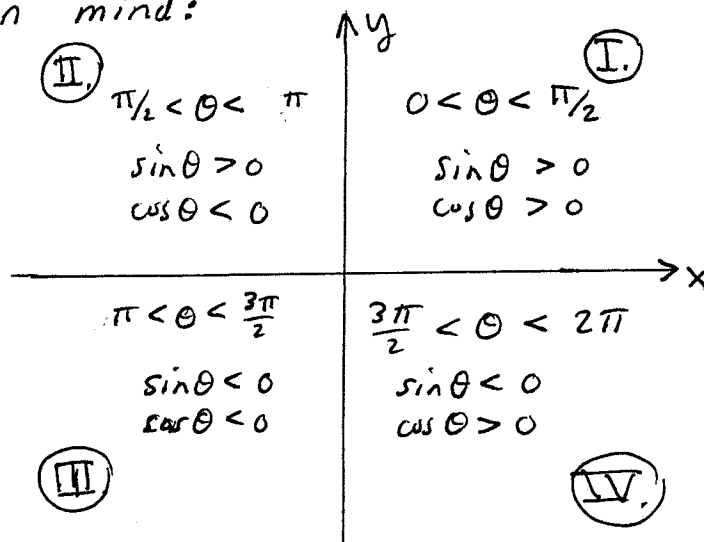 n mind:
y
II.
π/2 < θ < π
sin θ > 0
cos θ < 0
I.
0 < θ < π/2
sin θ > 0
cos θ > 0
x
π < θ < 3π/2
sin θ < 0
cos θ < 0
III
3π/2 < θ < 2π
sin θ < 0
cos θ > 0
IV.